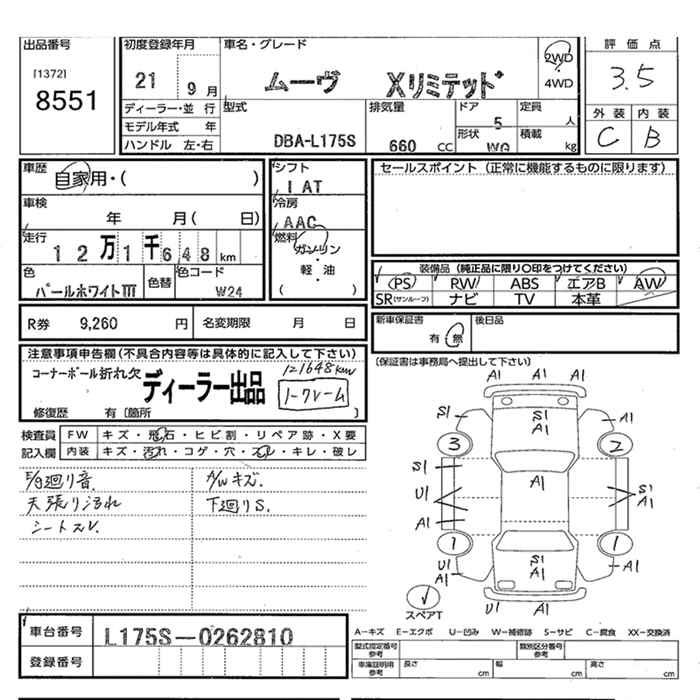 出品番号
[1372]
8551
初度登録年月
21 9 月
ディーラー・並 行
モデル年式 年
ハンドル 左・右
車名・グレード
ムーヴ Xリミテッド
2WD
・
4WD
型式
DBA-L175S
排気量
660 CC
ドア
5
形状
WG
定員
人
積載
kg
評価点
3.5
外装 内装
C B
車歴
自家用・( )
車検
年 月( 日)
走行
12万1千648km
色
パールホワイトIII
色替
色コード
W24
シフト
IAT
冷房
AAC
燃料
ガソリン
・
軽・油
( )
セールスポイント (正常に機能するものに限ります)
装備品 (純正品に限り○印をつけてください)
PS RW ABS エアB AW
SR(サンルーフ) ナビ TV 本革
R券 9,260 円 名変期限 月 日
新車保証書
有・無
後日品
(保証書は事務局へ提出して下さい)
注意事項申告欄(不具合内容等は具体的に記入して下さい)
コーナーポール折れ欠 ディーラー出品
121648km
ノークレーム
修復歴 有〔箇所 〕
検査員
記入欄
FW キズ・飛石・ヒビ割・リペア跡・X要
内装 キズ・汚れ・コゲ・穴・スレ・キレ・破レ
E/g廻り音.
天張り汚れ
シートスレ.
A/Wキズ.
下廻りS.
A1 A1 A1
S1 S1 A1 A1
3 2
S1 A1
U1 S1 A1
A1
1 1
U1 A1 S1 A1 A1
U1 A1
スペアT
車台番号 L175S-0262810
登録番号
A-キズ E-エクボ U-凹み W-補修跡 S-サビ C-腐食 XX-交換済
型式指定番号
参考
類別区分番号
参考
車庫証明用
参考
長さ cm 幅 cm 高さ cm